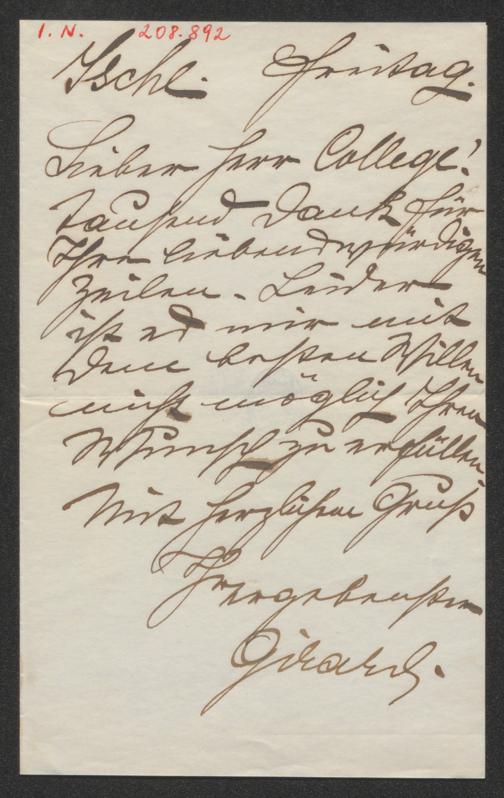 I. N. 208.892
Ischl. Freitag.
Lieber Herr College!
tausend Dank für
Ihre liebenswürdigen
Zeilen. Leider
ist es mir mit
dem besten Willen
nicht möglich Ihren
Wunsch zu erfüllen.
Mit herzlichem Gruß
Ihr ergebenster
Girardi.